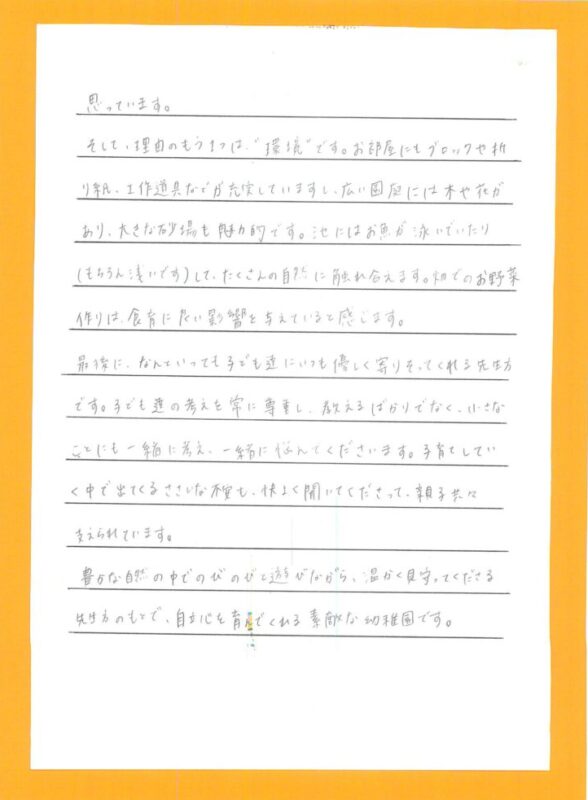 思っています。
そして、理由のもう1つは、“環境”です。お部屋にもブロックや折
り紙、工作道具などが充実していますし、広い園庭には木や花が
あり、大きな砂場も魅力的です。池にはお魚が泳いでいたり
(もちろん浅いです)して、たくさんの自然に触れ合えます。畑でのお野菜
作りは、食育に良い影響を与えていると感じます。
最後に、なんていっても子ども達にいつも優しく寄りそってくれる先生方
です。子ども達の考えを常に尊重し、教えるばかりでなく、小さな
ことにも一緒に考え、一緒に悩んでくださいます。子育てしてい
く中で出てくるささいな不安も、快よく聞いてくださって、親子共々
支えられています。
豊かな自然の中でのびのびと遊びながら、温かく見守ってくださる
先生方のもとで、自立心を育んでくれる素敵な幼稚園です。